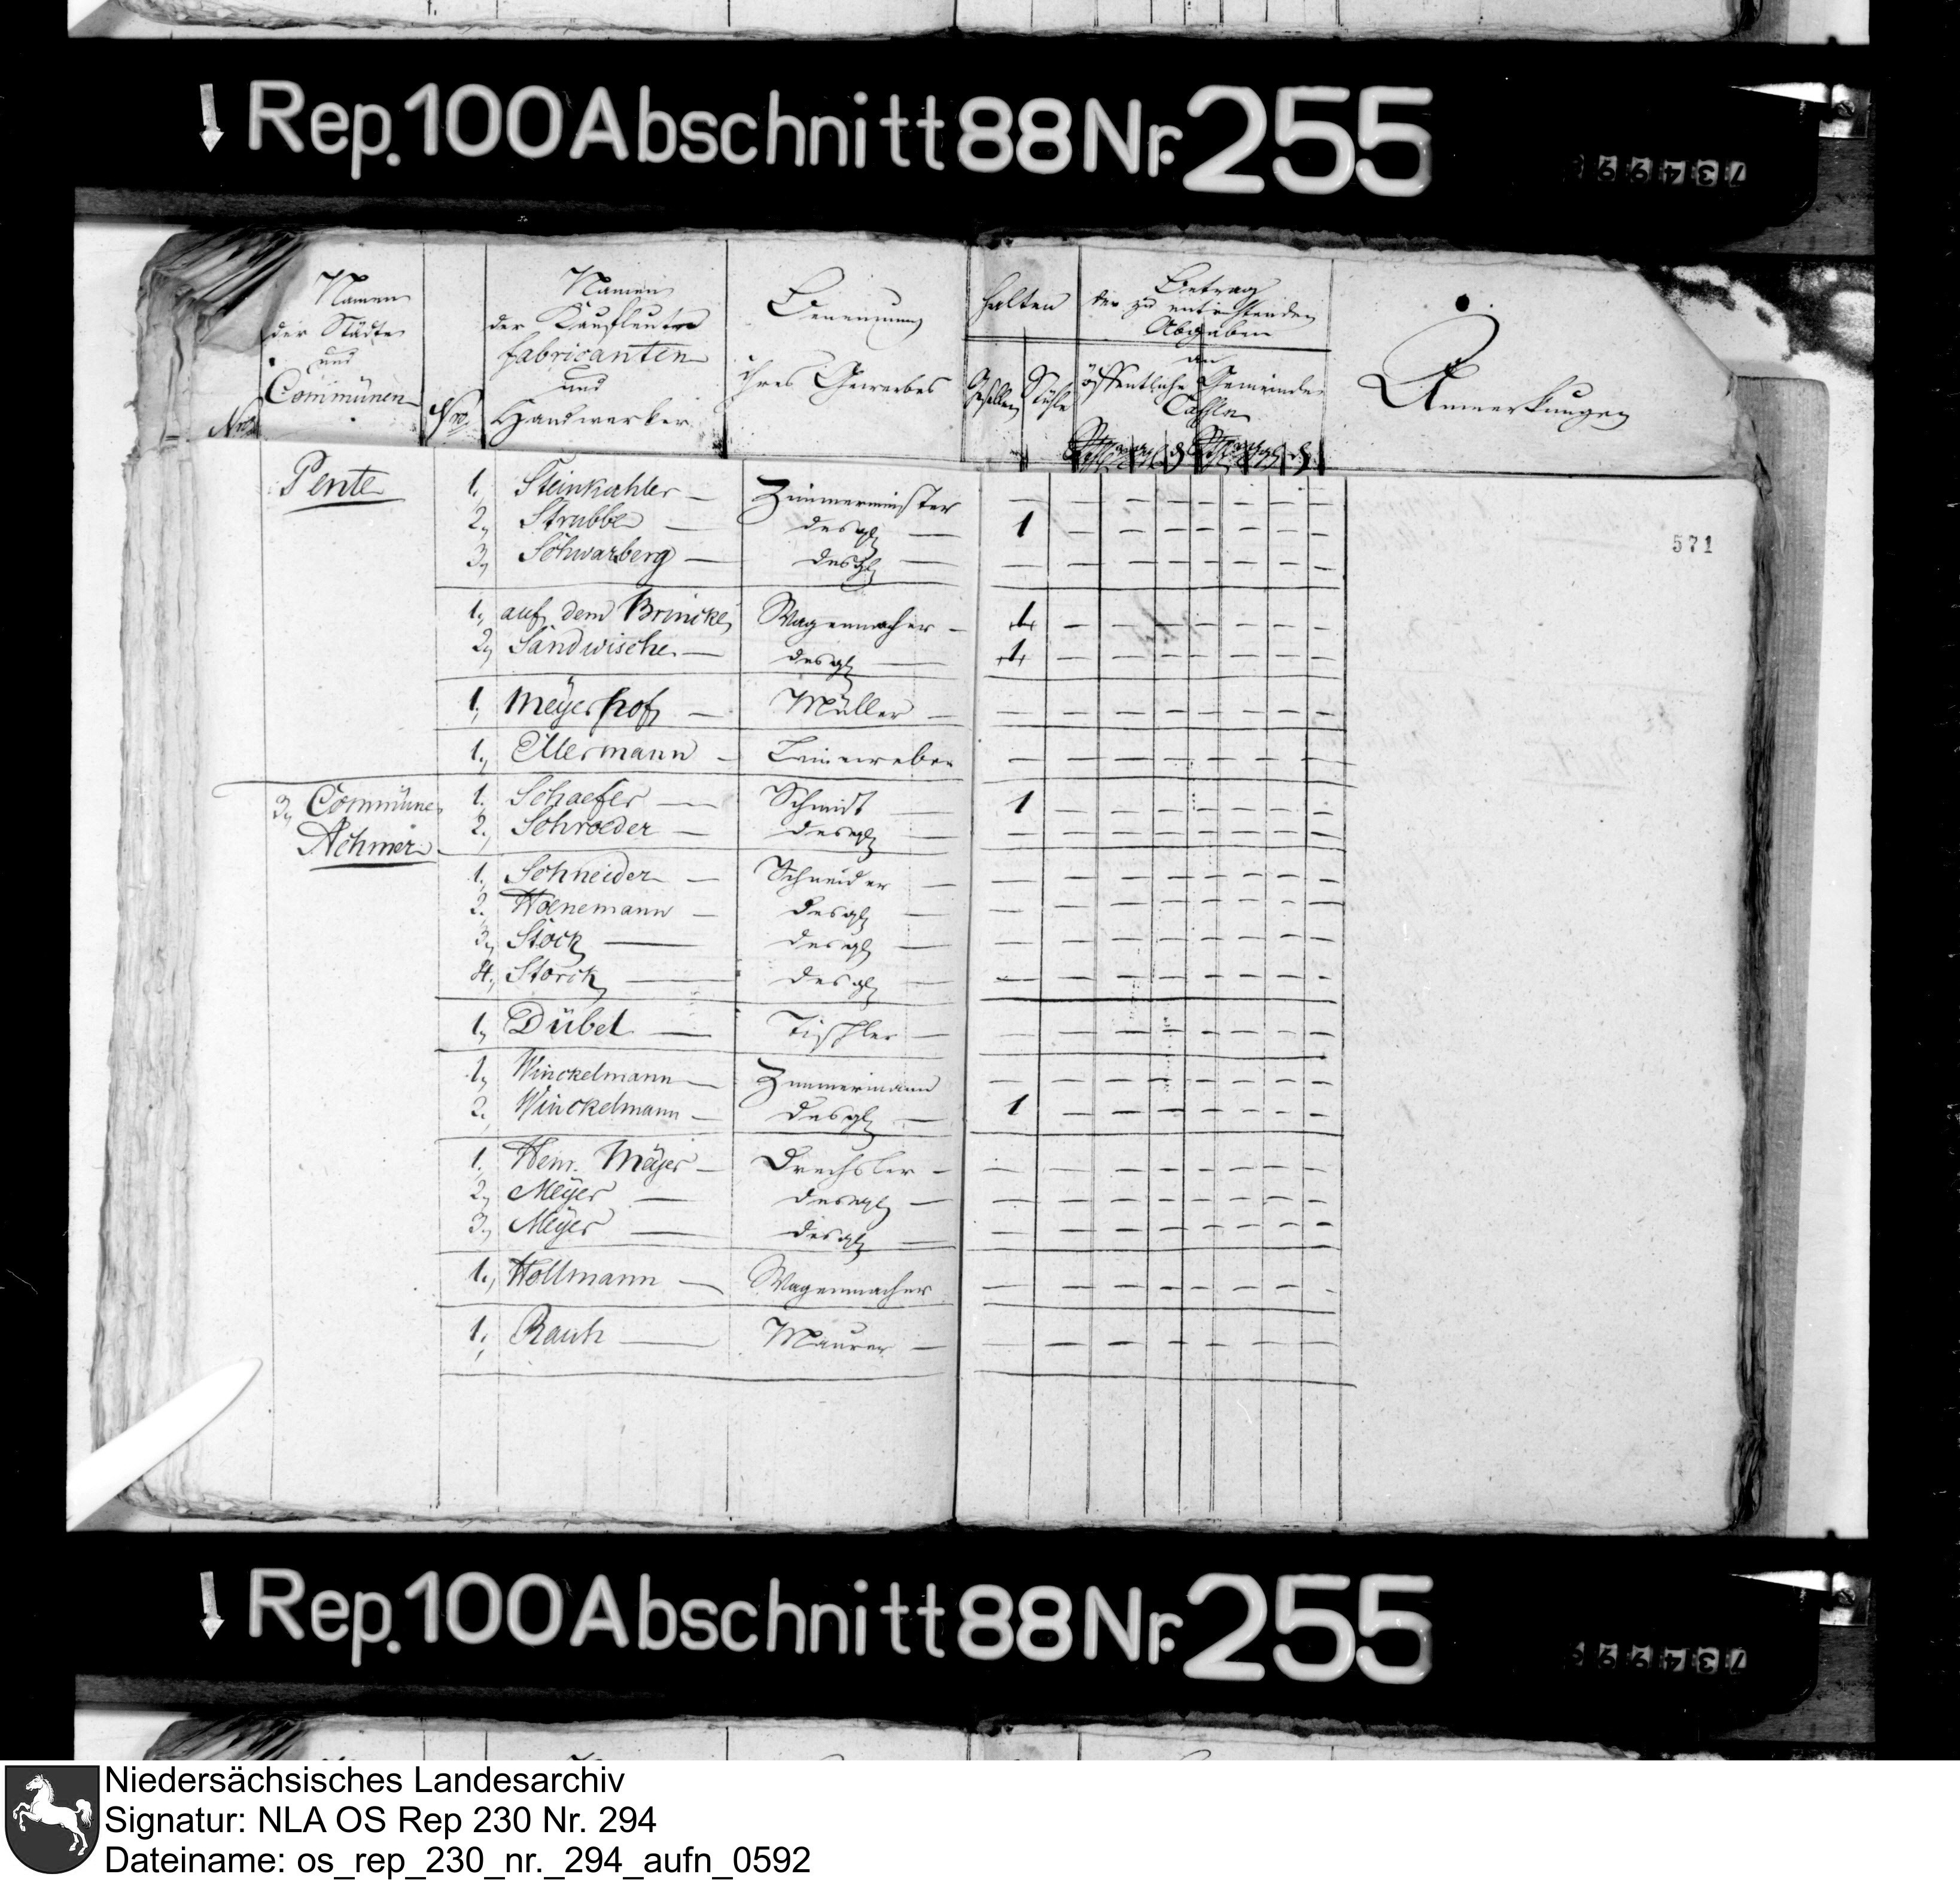 Rep. 100 Abschnitt 88 Nr. 255
Namen
der Städte
und
Communen
Nro.
Namen
der Kaufleute
Fabricanten
und
Handwerker
Benennung
ihres Gewerbes
halten
Gesellen
Stühle
Betrag
der zu entrichtenden
Abgaben
an
öffentliche Gemeinde
Cassen
Anmerkungen
571
Pente 1., Steinkahler — Zimmermeister — — — — — — — —
2., Strubbe — desgl. — 1 — — — — — — —
3., Schwarberg — desgl. — — — — — — — — —
1., auf dem Brincke Wagenmacher — 1 — — — — — — —
2., Sandwische — desgl. — 1 — — — — — — —
1., Meyerhof — Müller — — — — — — — — —
1., Ellermann — Leinenweber — — — — — — — —
3., Commüne 1., Schaefer — Schmidt — 1 — — — — — — —
Achmer 2., Schroeder — desgl. — — — — — — — —
1., Schneider — Schneider — — — — — — — — —
2., Hoenemann — desgl. — — — — — — — — —
3., Stock — desgl. — — — — — — — — —
4., Storck — desgl. — — — — — — — — —
1., Dübel — Tischler — — — — — — — — —
1., Winckelmann — Zimmermann — — — — — — — —
2., Winckelmann — desgl. — 1 — — — — — — —
1., Henr. Meÿer — Drechsler — — — — — — — — —
2., Meÿer — desgl. — — — — — — — — —
3., Meÿer — desgl. — — — — — — — — —
1., Hollmann — Wagenmacher — — — — — — — —
1., Rauh — Maurer — — — — — — — — —
Rep. 100 Abschnitt 88 Nr. 255
Niedersächsisches Landesarchiv
Signatur: NLA OS Rep 230 Nr. 294
Dateiname: os_rep_230_nr._294_aufn_0592